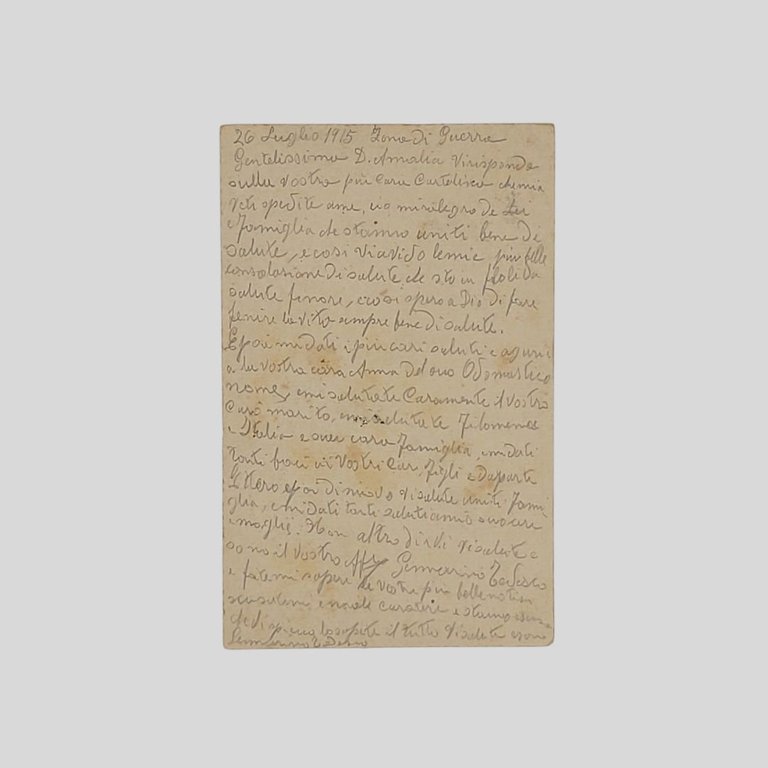 26 Luglio 1915 Zona di Guerra
Gentelissima D. Amalia Virisponde
sulla vostra più cara Cartolina chemia
veti spedite ame, cio mirallegro de Lei
e Famiglia che stanno uniti bene di
salute, e cosi Viavido lemie più belle
consolasione di salute che sto in florida
salute finore, ecosi spero a Dio di fare
fenire la vita sempre bene di salute.
E poi midati i più cari saluti e aguri
a la vostra cara Anna del suo Odomastico
nome, emi salutate Caramente il Vostro
Caro marito, emi salutate Filomena
e Italia e suer cara Famiglia, emidati
tanti baci ai Vostri Cari Figli e da parte
epoi di nuovo visalute uniti Fami
glia, emidati tanti saluti amio suocere
e moglie. Non altro di dirvi visalute e
sono il Vostro Aff Gennarino Tedesco
e fatemi sapere le vostre più belle notisii
scusatemi emale carattere e stamo
il tutto Visalute esono
Gennarino Tedesco